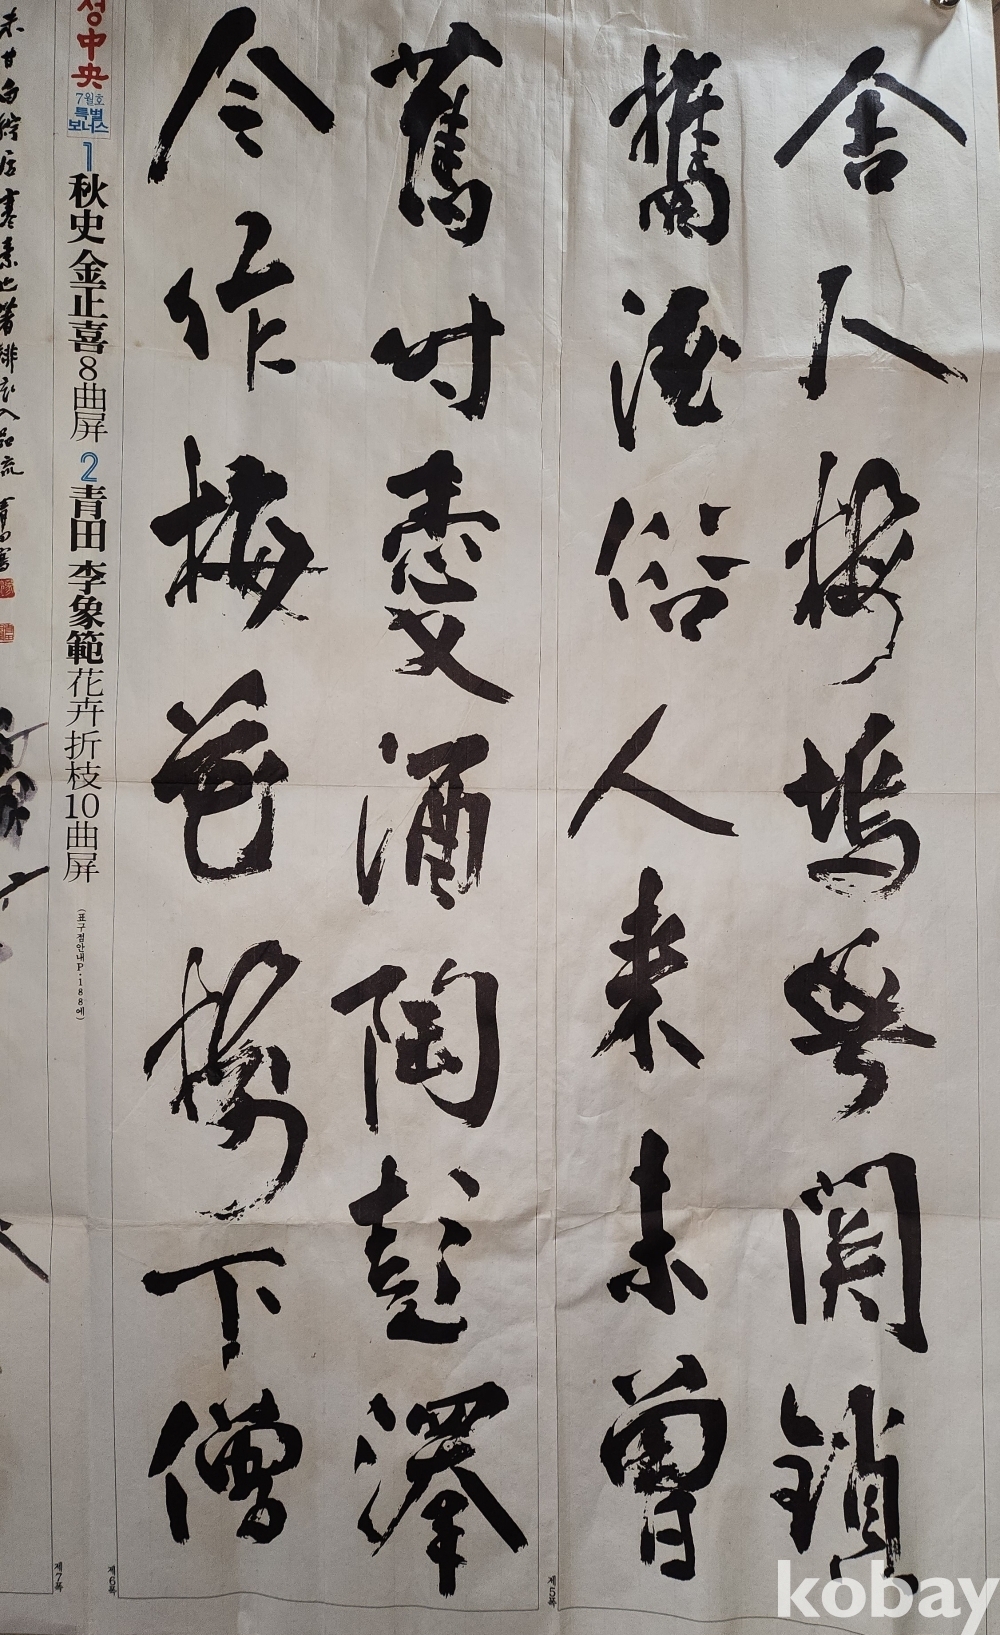 舍人梅塢無關鎖
攜酒俗人來未曾
舊時愛酒陶彭澤
今作梅花樹下僧
제5폭
제6폭
성中央
7월호
특별
보너스
1 秋史 金正喜 8曲屏 2 青田 李象範 花卉 折枝 10曲屏
(표구점안내P·188에)
제7폭
kobay